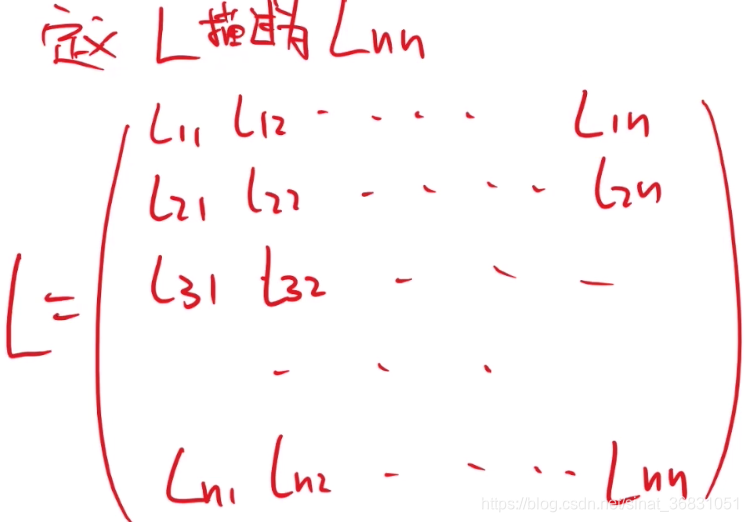 定义 L 矩阵为 Lnn
L11 L12 - . . . L1n
L21 L22 - . . . L2n
L= L31 L32 - - -
- . .
Ln1 Ln2 - - . . . Lnn
https://blog.csdn.net/sinat_36831051